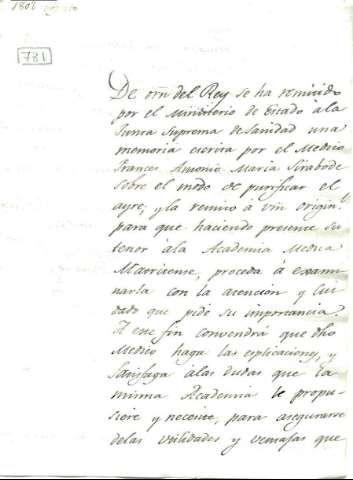 1806
781
De orn del Rey se ha remitido
por el Ministerio de Estado à la
Junta Suprema de Sanidad una
memoria escrita por el Medico
Frances Antonio Maria Sirabode
sobre el modo de purificar el
ayre, y la remito a vm origin.l
para que haciendo presente su
tenor à la Academia Medica
Matritense, proceda à exami-
narla con la atencion y cui
dado que pide su importancia.
A ese fin convendrá que dho
Medico haga las explicaciones, y
satisfaga a las dudas que la
misma Academia le propu-
siere y necesite, para asegurarse
de las utilidades y ventajas que